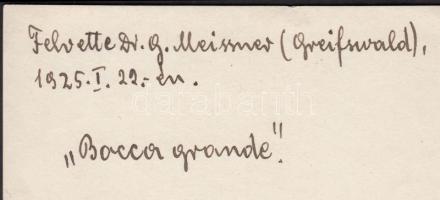 Felvette Dr. G. Meissner (Greifswald),
1925. I. 22.-én.
„Bocca grande".